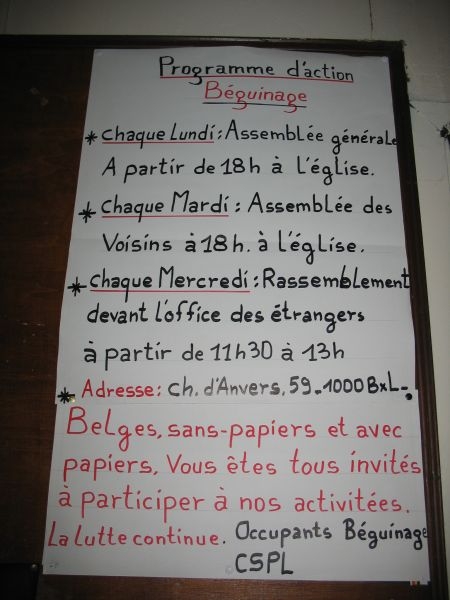 Programme d'action
Béguinage
* chaque Lundi : Assemblée générale
A partir de 18h à l'église.
* chaque Mardi : Assemblée des
Voisins à 18h. à l'église.
* chaque Mercredi : Rassemblement
devant l'office des étrangers
à partir de 11h30 à 13h
* Adresse : ch. d'Anvers, 59-1000 BxL-.
Belges, sans-papiers et avec
papiers, Vous êtes tous invités
à participer à nos activitées.
La lutte continue. Occupants Béguinage
CSPL